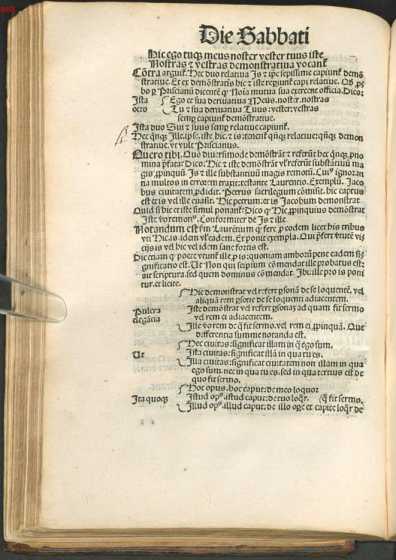 Die Sabbati
Hic ego tuq; meus noster vester tuus iste
Nostras & vestras demonstratiua vocant̃
Cõtra arguiť. Hec duo relatiua Is & ip̃e sepissime capiunť demõ
stratiue. Et ex demõstratiõ hic & iste reguũt capi relatiue.
bo p Priscianũ dicentẽ q Noĩa mutua sua exercent officia. Dico:
Ista Ego et sua deriuatiua Meus. noster. nostras
octo Tu & sua deriuatiua Tuus: vester: vestras
semp capiunť demõstratiue.
Ista duo Sui & suus semp relatiue capiunť.
Hec qñq; Ille. ipse. iste. hic. & is: tenenť qñq; relatiue: qñq; demon
stratiue. vt vult Priscianus.
Quero tibi. Quo diuersimode demõstrãt & referũt hec qñq; pno
mina p̃fata: Dico: Hic & iste demõstrãt vel referũt substãtiũ ma
gis p̃pinquũ Is & ille substantiuũ magis remotũ. Cuiꝰ ignoran
tia multos in errorem traxit: testante Laurentio. Exemplũ. Jaco
bus ciuitatem p̃didit. Petrus sacrilegium cõmisit. hic captus
est & is vel ille euasit. Hic petrum. et is Jacobum demonstrat
Quid si hic et iste simul ponanť: Dico q Hic p̃pinquius demõstrat
Iste: vo remotiꝰ. Conformiter de Is & ille.
Notandum est fm Laurentiũ q̃ fere p eodem licet his tribus
vti Hic. is. idem vł eadem. Ex ponit exempla. Qui p̃fert virtutẽ vi
cijs is vel hic vel idem sane fortis est.
Dic etiam q̃ poete vtunť ille. p is: quoniam ambo pene eadem si
gnificatio est. Ut Non qui seipsum cõmendat ille probatus est:
aiť scriptura. sed quem dominus cõmendat. Ibi: ille pro is poni
tur. et licite.
Hic demonstrat vel refert psonã de se loquentẽ. vel
aliquã rem psone de se loquenti adiacentem.
Pulcra Iste demõstrat vel refert psonã ad quam fit sermo
elegãtia vel rem ei adiacentem.
Ille vo rem de q̃ fit sermo. vel rem ei p̃pinquã. Que
differentia summe notanda est.
Hec ciuitas: significat illam in q̃ ego sum.
Ut Ista ciuitas: significat illã in qua tu es.
Illa ciuitas: significat ciuitatem non illam in qua
ego sum. nec in qua tu es. sed in qua tertius est de
quo fit sermo.
Hoc opus. hoc caput: de meo loquor
Ita quoq; Istud opꝰ. istud caput: de tuo loq̃r. (q̃ fit sermo.
Illud opꝰ. illud caput: de illo opere et capite loq̃r de